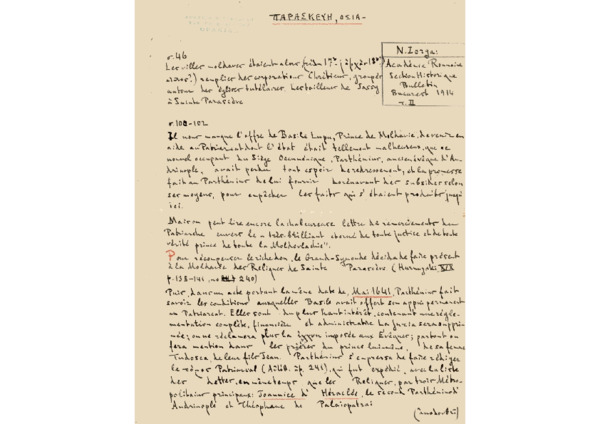 ΠΑΡΑΣΚΕΥΗ, ΟΣΙΑ-
N. Iorga:
Académie Roumaine
Section Historique
Bulletin
Bucarest 1914
τ. II
σ. 46
Les villes moldaves étaient alors
peuplées des corporations Chrétiennes, groupées
autour des églises tutélaires, les tailleurs de Jassy
à Sainte Parascève
σ. 100-102
Il nous manque l'offre de Basile Lupu, Prince de Moldavie, de venir en
aide au Patriarcat dont l'état était tellement malheureux, que ce
nouvel occupant du Siège Oecuménique, Parthénius, ancien évêque d'An-
drinople, avait perdu tout espoir de redressement, et la promesse
fait au Parthénius de lui fournir dorénavant des subsides selon
ses moyens, pour empêcher les faits qui s'étaient produits jusqu'
ici.
Mais on peut lire encore la chaleureuse lettre de remerciements du
Patriarche envers le « très brillant, orné de toute justice et de toute
vérité prince de toute la Moldovlachie".
Pour récompenser le riche don, le Grand-Synode décida de faire présent
à la Moldavie des Reliques de Sainte Parascève (Hurmuzaki XIV
p. 138-141, no 240)
Puis dans un acte portant la même date de, Mai 1641, Parthénius fait
savoir les conditions auxquelles Basile avait offert son appui permanent
au Patriarcat. Elles sont du plus haut intérêt, contenant une régle-
mentation complète, financière et administrative
on
fera mention dans les prières du prince lui-même, de sa femme
Tudosca, de leur fils Jean. Parthénius s'empressa de faire rédiger
le tómos Patriarcal qui fut expédié, avec la liste
des dettes, en même temps que les Reliques, par trois Métro-
politains principaux: Joannice d'Héraclée, le second Parthénius d'
Andrinople et Théophane de Palaiopatrai